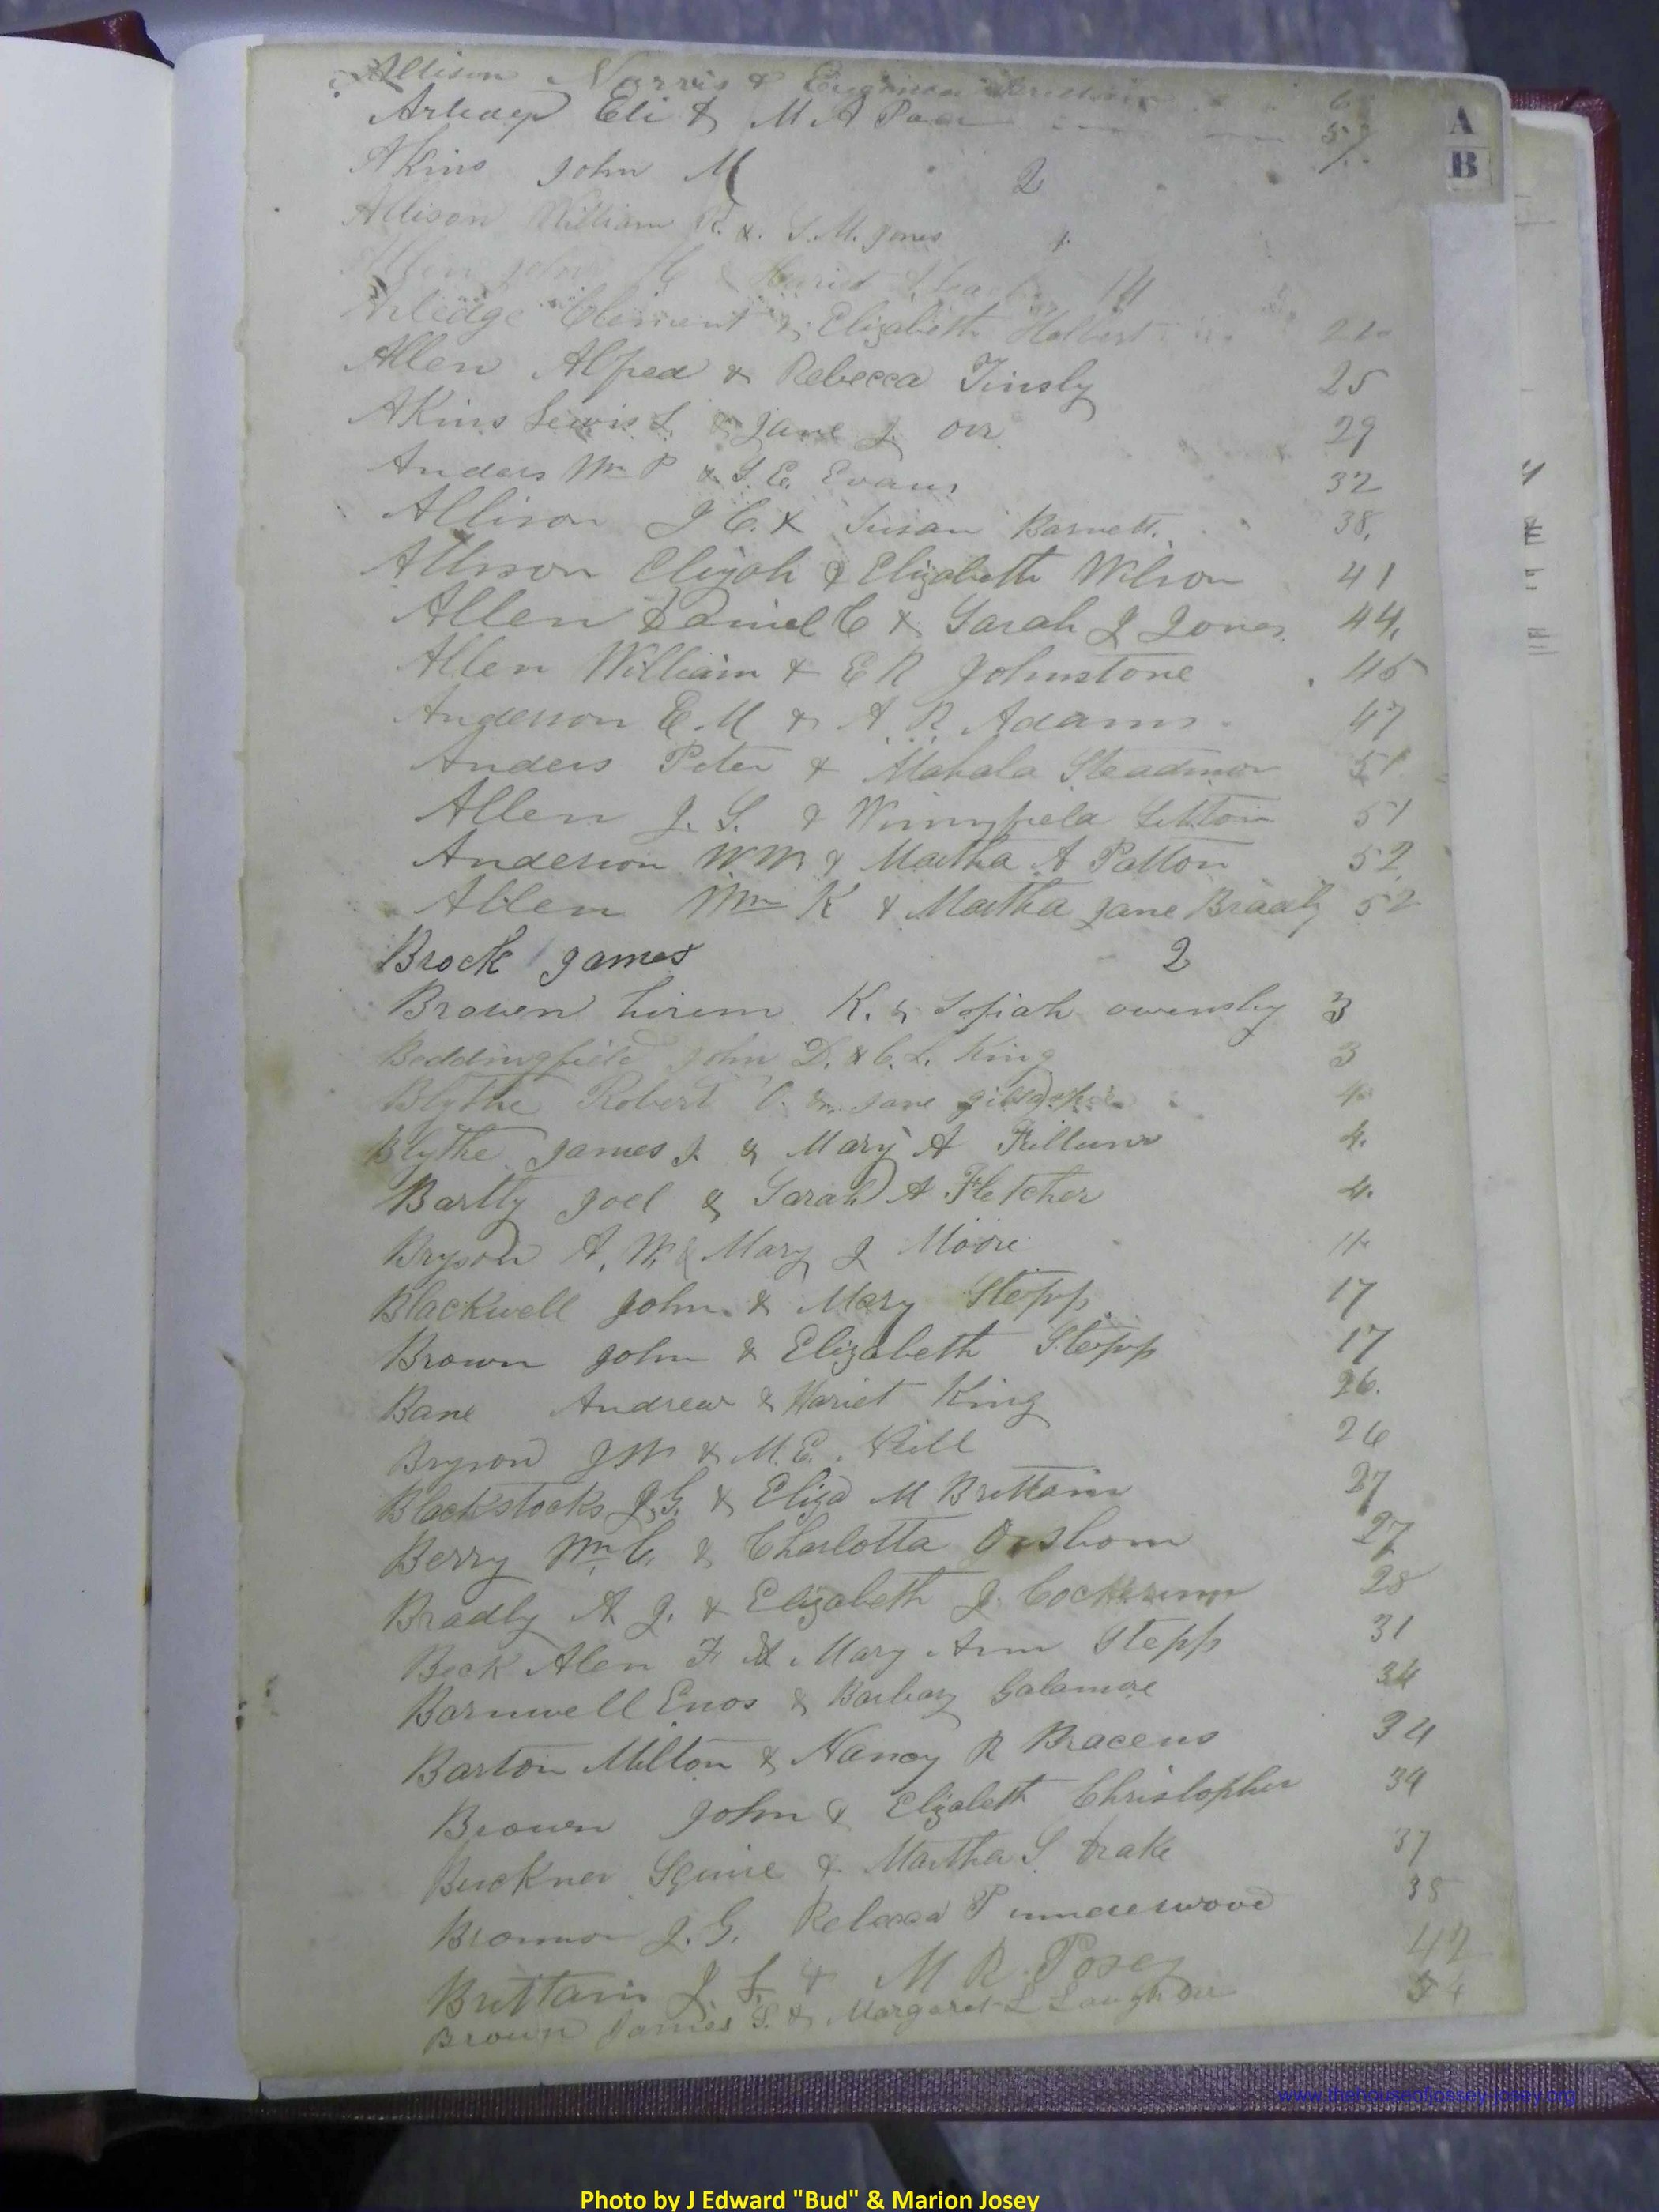 Allison Norris & 6
A
B
Eli & M A 57
Akins John M 2
Allison William R. &. S. M. Jones 1.
Allen John & Hariet 14
Arledge Clement & Elizabeth Holbert 22
Allen Alfred & Rebecca Tinsly 25
AKins Lewis L. & Jane J. Orr 29
Anders Wm P & S. E. Evans 32
Allison J C. & Susan Barnett. 38.
Allison Elijah & Elizabeth Wilson 41
Allen Daniel C & Sarah J Jones. 44.
Allen William & E R Johnstone 45
Anderson E M & A R Adams 47
Anders Peter & Mahala Steadmon 51
Allen J. S. & Winnyfield Sitton 51
Anderson WM & Martha A Patton 52
Allen Wm K & Martha Jane Bradly 52
Brock James 2
Brown hirem K. & Sofiah owensby 3
Beddingfield John D. & C. L. King 3
Blythe Robert & Jane 4
Blythe James J. & Mary A Killian 4.
Bartly Joel & Sarah A Fletcher 4.
Bryson A. W. & Mary J Moore 11
Blackwell John & Mary Stepp 17
Brown John & Elizabeth Stepp 17
Bane Andrew & Hariet King 26.
Bryson J W & M. E. Hill 26
Blackstocks J. G. & Eliza M Brittain 27
Berry Wm C. & Charlotta Orsborn 27
Bradly A J. & Elizabeth J. Cockerum 28
Beck Alen F & Mary Ann Stepp 31
Barnwell Enos & Barbary Galamore 34
Barton Milton & Nancy R Bracens 34
Brown John & Elizabeth Christopher 34
Buckner Squire & Martha S. Drake 37
J. G. P underwood 38
Brittain J. L & M R. Posey 42
Brown James S. & Margaret L Laughter 54
www.thehouseofjossey-josey.org
Photo by J Edward "Bud" & Marion Josey